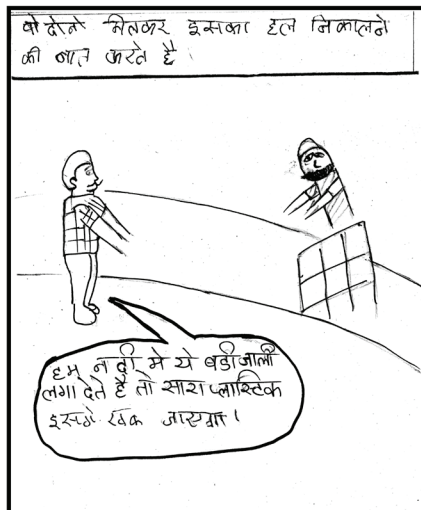 वो दोनो मिलकर इसका हल निकालने
की बात करते है
हम नदी मे ये बडी जाली
लगा देते है तो सारा प्लास्टिक
इसमे रुक जाएगा।